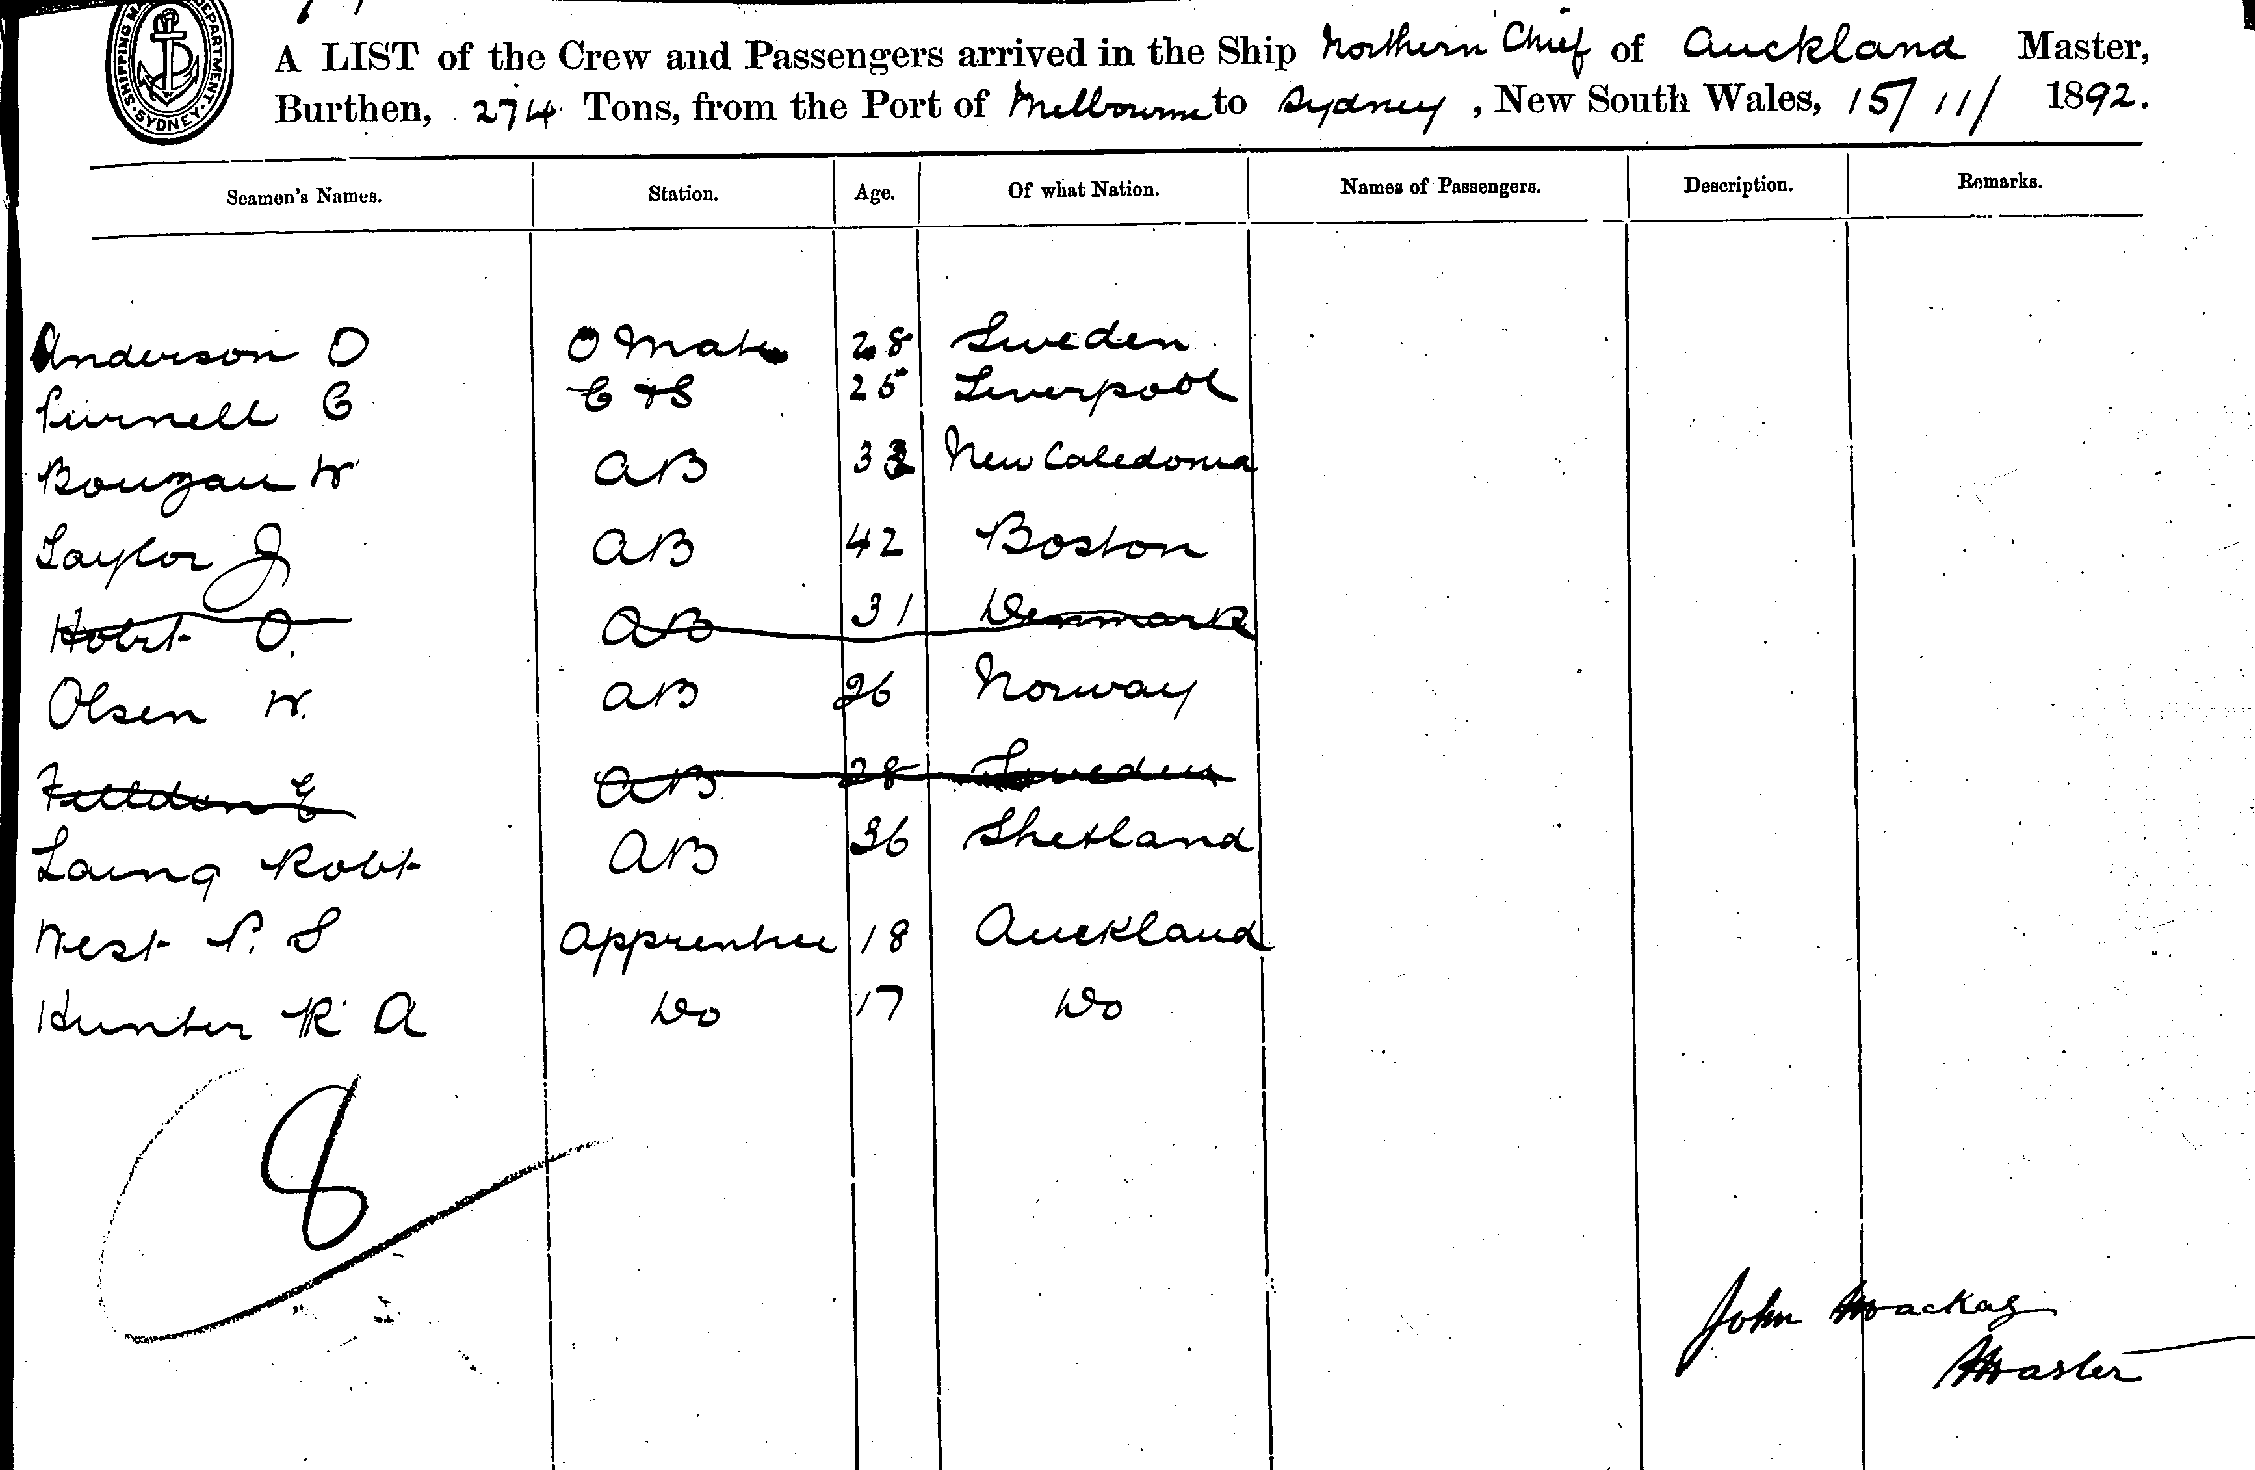 SHIPPING MA DEPARTMENT. SYDNEY.
A LIST of the Crew and Passengers arrived in the Ship Northern Chief of Auckland Master,
Burthen, 274 Tons, from the Port of Melbourne to Sydney, New South Wales, 15/11/ 1892.
Seamen's Names. Station. Age. Of what Nation. Names of Passengers. Description. Remarks.
Anderson O O Mate 28 Sweden
Purnell C C & S 25 Liverpool
Bouzau W AB 33 New Caledonia
Taylor J AB 42 Boston
Hobrt O. AB 31 Denmark
Olsen W. AB 26 Norway
E AB 28 Sweden
Laing Robt AB 36 Shetland
West P. S Apprentice 18 Auckland
Hunter R A Do 17 Do
8
John Mackay
Master